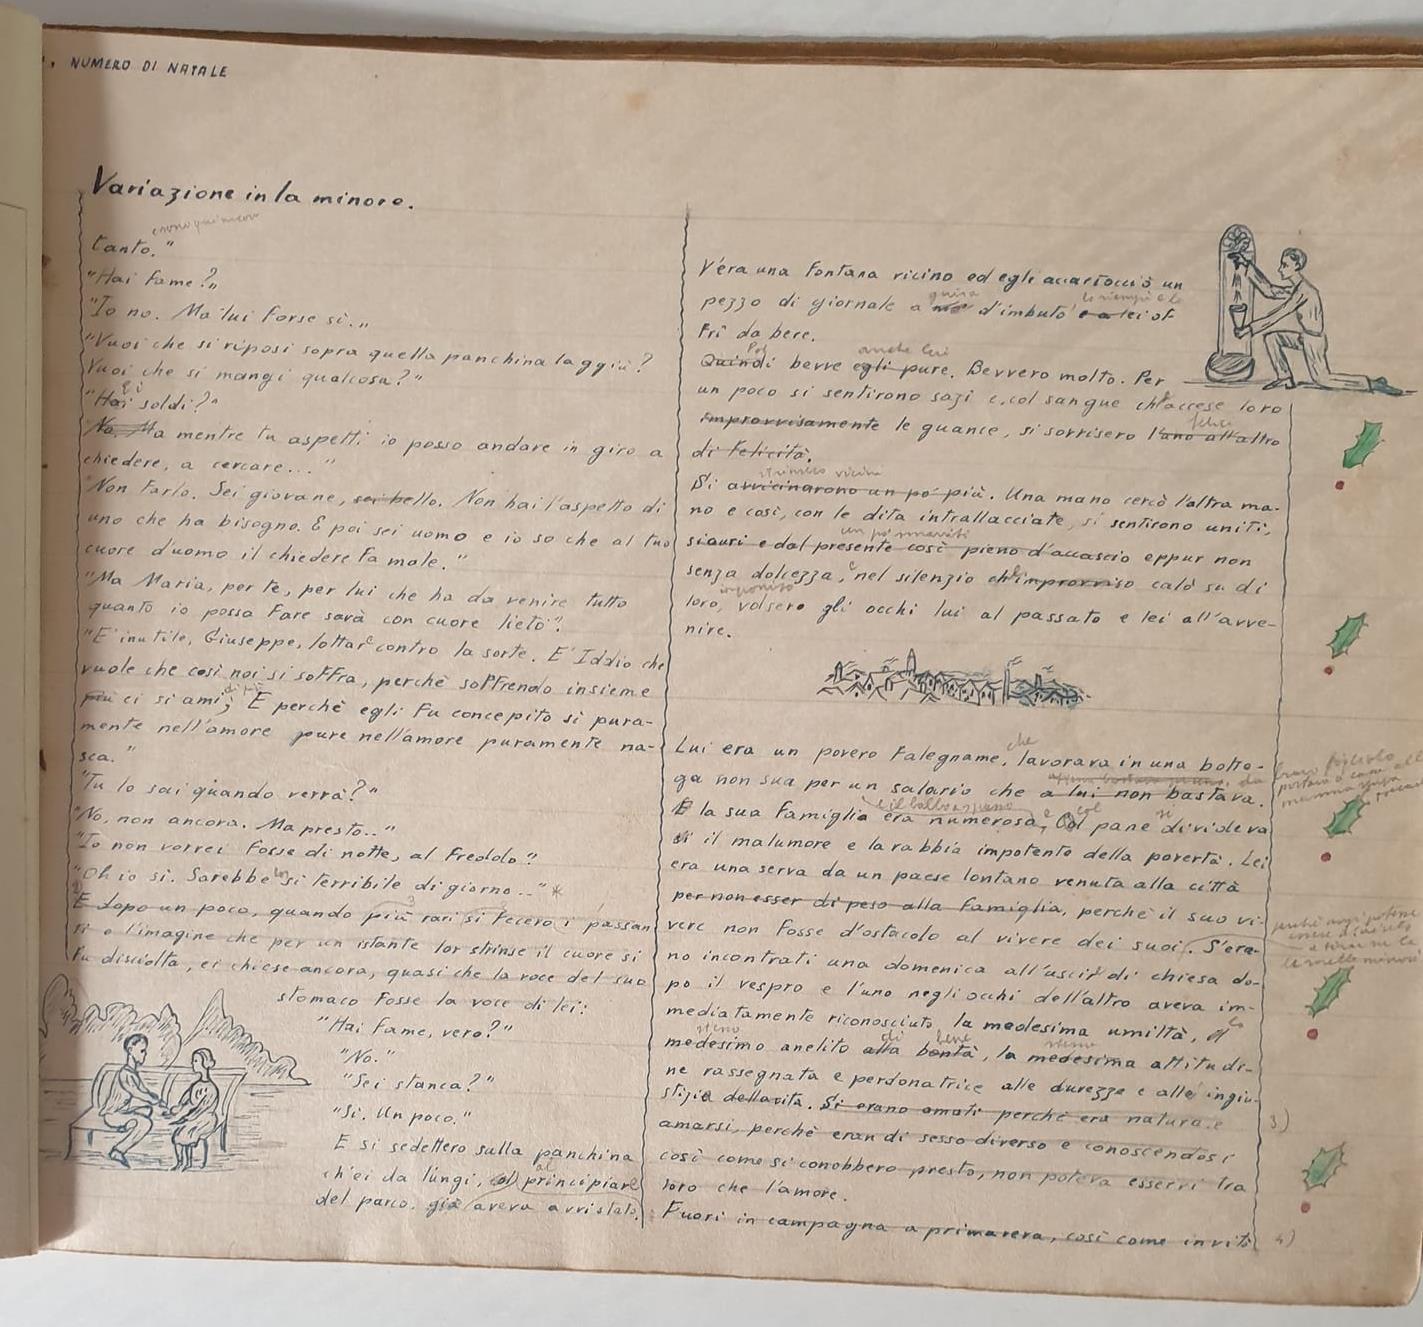 NUMERO DI NATALE
Variazione in la minore.
tanto."
"Hai fame?"
"Io no. Ma lui forse sì..."
"Vuoi che si riposi sopra quella panchina laggiù?
Vuoi che si mangi qualcosa?"
"Hai soldi?"
"No. Ma mentre tu aspetti io posso andare in giro a
chiedere, a cercare..."
"Non farlo. Sei giovane, sei bello. Non hai l'aspetto di
uno che ha bisogno. E poi sei uomo e io so che al tuo
cuore d'uomo il chiedere fa male."
"Ma Maria, per te, per lui che ha da venire tutto
quanto io possa fare sarà con cuore lieto".
"E' inutile, Giuseppe, lottar contro la sorte. E' Iddio che
vuole che così noi si soffra, perchè soffrendo insieme
più ci si ami; di più E perchè egli fu concepito sì pura-
mente nell'amore pure nell'amore puramente na-
sca."
"Tu lo sai quando verrà?"
"No, non ancora. Ma presto..."
"Io non vorrei fosse di notte, al freddo."
"Oh io sì. Sarebbe così terribile di giorno..." *
E dopo un poco, quando più rari si fecero i passan
ti e l'imagine che per un istante lor strinse il cuore si
fu disciolta, ei chiese ancora, quasi che la voce del suo
stomaco fosse la voce di lei:
"Hai fame, vero?"
"No."
"Sei stanca?"
"Sì. Un poco."
E si sedettero sulla panchina
ch'ei da lungi, al principiare
del parco, già aveva avvistato.
V'era una fontana vicino ed egli accartocciò un
guisa lo riempì e le
pezzo di giornale a d'imbuto e a lei of
frì da bere.
Poi anche lui
Quindi bevve egli pure. Bevvero molto. Per
un poco si sentirono sazi e, col sangue che accese loro
felici
improvvisamente le guance, si sorrisero l'uno all'altro
di felicità.
strinsero vicini
Si avvicinarono un po' più. Una mano cercò l'altra ma-
no e così, con le dita intrallacciate, si sentirono uniti,
un po' smarriti
siausi e dal presente così pieno d'accascio eppur non
senza dolcezza, e nel silenzio che improvviso calò su di
improviso
loro, volsero gli occhi lui al passato e lei all'avve-
nire.
Lui era un povero falegname, che lavorava in una botte-
ga non sua per un salario che a lui non bastava.
E la sua famiglia era numerosa, e col pane si divideva
si il malumore e la rabbia impotente della povertà. Lei
era una serva da un paese lontano venuta alla città
per non esser di peso alla famiglia, perchè il suo vi-
vere non fosse d'ostacolo al vivere dei suoi. S'era-
no incontrati una domenica all'uscir di chiesa do-
po il vespro e l'uno negli occhi dell'altro aveva im-
mediatamente riconosciuto la medesima umiltà, il
steno di bene stessa
medesimo anelito alla bontà, la medesima attitudi-
ne rassegnata e perdonatrice alle durezze e alle ingiu-
stizie della vita. Si erano amati perchè era naturale
3)
amarsi, perchè eran di sesso diverso e conoscendosi
così come si conobbero presto, non poteva esservi tra
loro che l'amore.
Fuori in campagna a primavera, così come invitò
4)